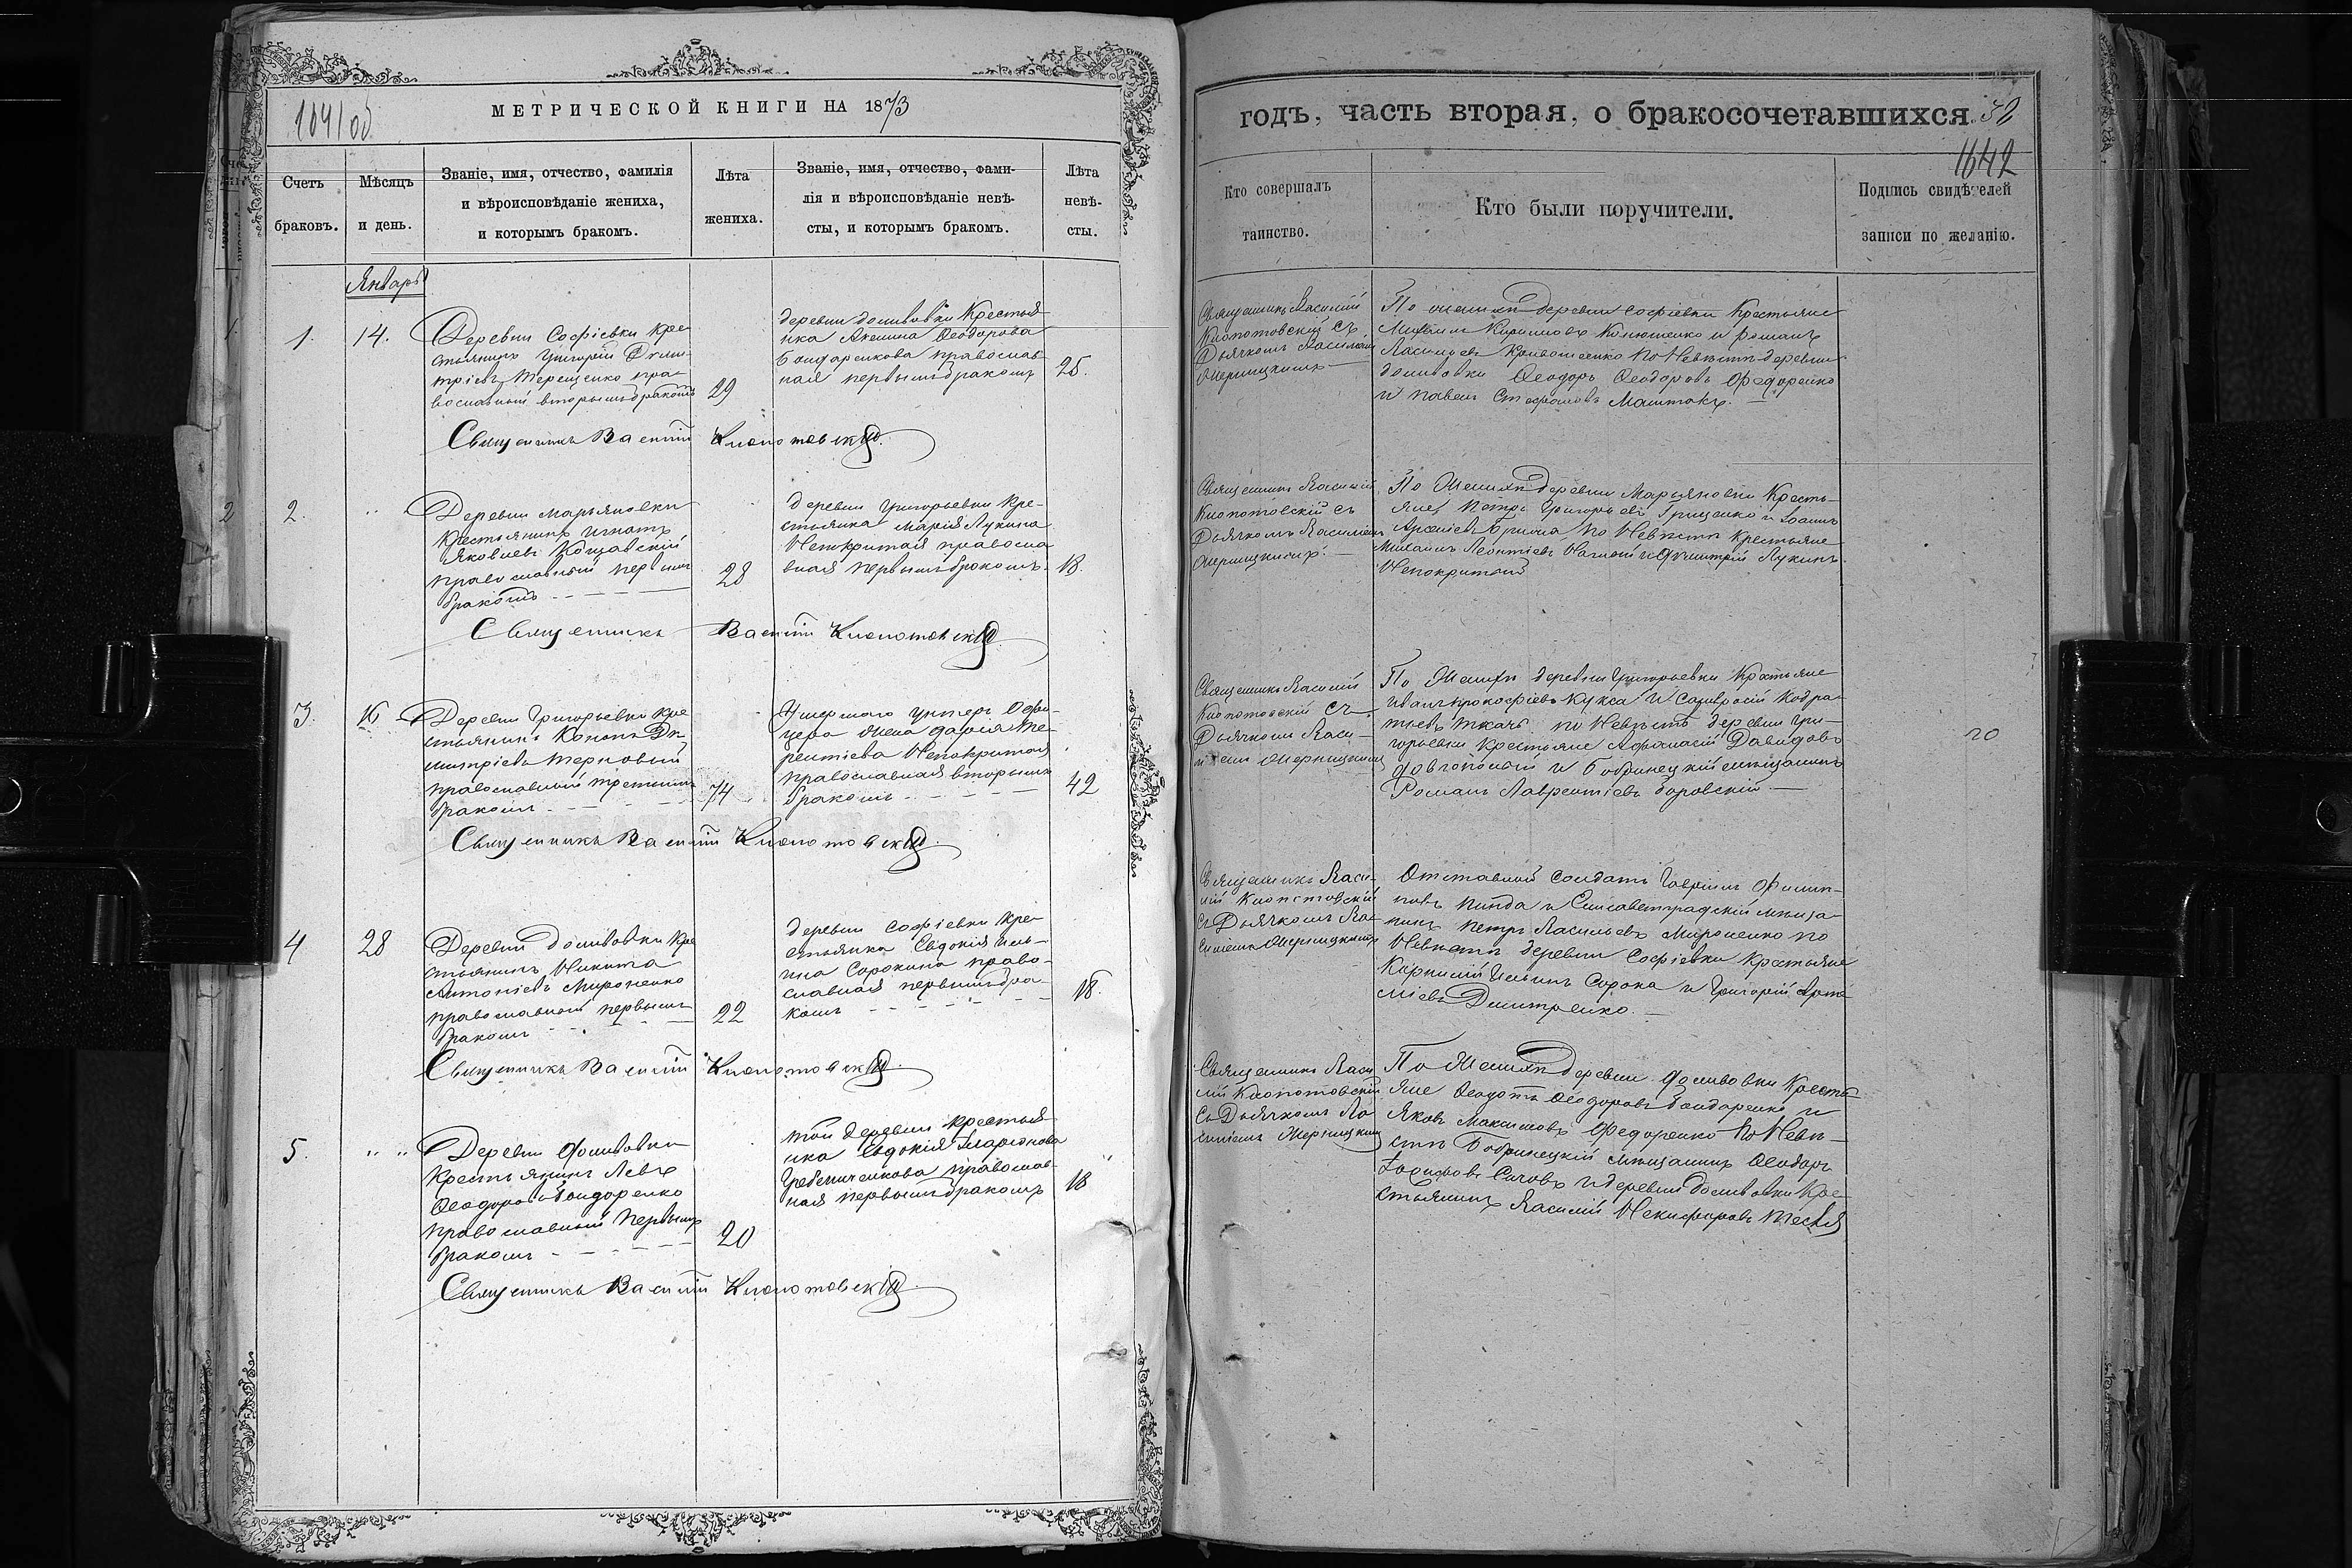 МЕТРИЧЕСКОЙ КНИГИ НА 1873
Счетъ браковъ.
Мѣсяцъ и день.
Званіе, имя, отчество, фамилія
и вѣроисповѣданіе жениха,
и которымъ бракомъ.
Лѣта
жениха.
Званіе, имя, отчество, фами-
лія и вѣроисповѣданіе невѣ-
сты, и которымъ бракомъ.
Лѣта
невѣ-
сты.
Январь
1.
14.
Деревни Софіевки кре
стьянинъ Григорій Дими
тріевъ Терещенко пра-
вославный вторымъ бракомъ
29
деревни Крестья
нка Акилина Ѳеодорова
Бондаренкова православ
ная первымъ бракомъ
25.
Священникъ Василій Клопотовскій
2.
" "
Деревни Марьяновки
Крестьянинъ Игнатъ
Яковлевъ
православный первымъ
бракомъ
28
деревни Григорьевки кре-
стьянка Марія Лукина
Непокритая правосла
вная первымъ бракомъ.
18.
Священникъ Василій Клопотовскій
3.
16
Деревни Григорьевки кре
стьянинъ Кононъ Ди
митріевъ Терновый
православный третьимъ
бракомъ
74
Умершаго унтеръ офи-
цера жена Дарія Те-
рентіева Непокритая
православная вторымъ
бракомъ
42
Священникъ Василій Клопотовскій
4
28
Деревни кре
стьянинъ Никита
Антоніевъ Мироненко
православный первымъ
бракомъ
22
деревни Софіевки кре
стьянка Евдокія Иль-
ина Сорокина право-
славная первымъ бра-
комъ
18.
Священникъ Василій Клопотовскій
5.
" "
Деревни
Крестьянинъ Левъ
Ѳеодоровъ Бондаренко
православный первымъ
бракомъ
20
той деревни крестья
нка Евдокія Иларіонова
Гребенниченкова православ-
ная первымъ бракомъ
18
Священникъ Василій Клопотовскій
годъ, часть вторая, о бракосочетавшихся
52
1642
Кто совершалъ
таинство.
Кто были поручители.
Подпись свидѣтелей
записи по желанію.
Священникъ Василій
Клопотовскій съ
Дьячкомъ Василіемъ
По женихѣ деревни Софіевки Крестьяне
Михаилъ Кириловъ и Романъ
Василіевъ по Невѣстѣ деревни
Ѳеодоръ Ѳеодоровъ Федоренко
и Павелъ Стефановъ
Священникъ Василій
Клопотовскій съ
Дьячкомъ Василіемъ
По Женихѣ деревни Марьяновки Кресть-
яне Петръ Григорьевъ Грищенко и Іоаннъ
Арсеніевъ по Невѣстѣ Крестьяне
Михаилъ Леонтіевъ и Димитрій Лукинъ
Непокритый
Священникъ Василій
Клопотовскій съ
Дьячкомъ Васи-
ліемъ
По Женихѣ деревни Григорьевки Крестьяне
Иванъ Прокофіевъ Кукса и Кодра-
тьевъ Ткачъ по Невѣстѣ деревни Гри-
горьевки Крестьяне Афанасій Давидовъ
и Бобринецкій мѣщанинъ
Романъ Лаврентіевъ Боровскій
20
Священникъ Васи-
лій Клопотовскій
съ Дьячкомъ Ва-
Отставной Солдатъ Гавріилъ Филип-
повъ и Елисаветградскій мѣща-
нинъ Петръ Васильевъ Мироненко по
Невѣстѣ деревни Софіевки Крестьяне
Ильинъ Сорока и Григорій Арте
міевъ Дмитренко.
Священникъ Васи
лій Клопотовскій
съ Дьячкомъ Ва
По Женихѣ деревни Кресть
яне Ѳеодотъ Ѳеодоровъ Бондаренко и
Яковъ Максимовъ Федоренко по Невѣ-
стѣ Бобринецкій мѣщанинъ Ѳеодоръ
и деревни Кре-
стьянинъ Василій Никифоровъ Тесля